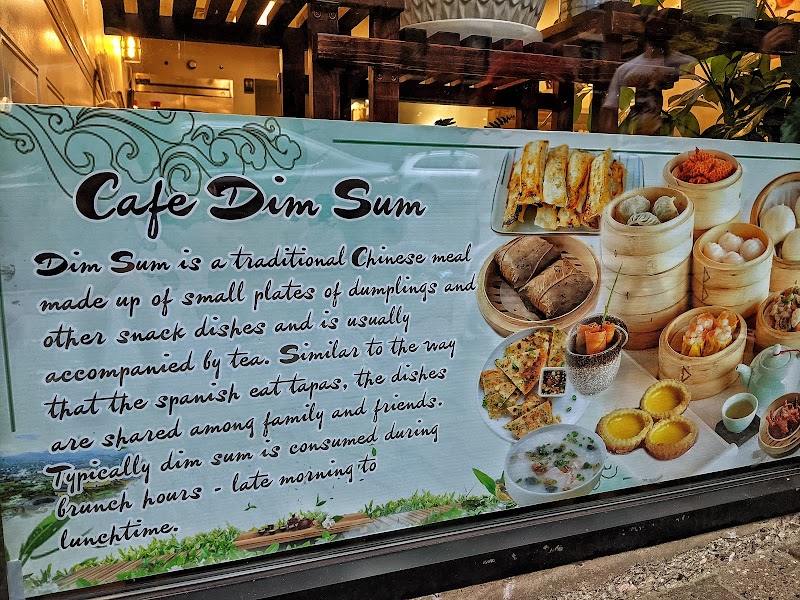 Cafe Dim Sum
Dim Sum is a traditional Chinese meal
made up of small plates of dumplings and
other snack dishes and is usually
accompanied by tea. Similar to the way
that the spanish eat tapas, the dishes
are shared among family and friends.
Typically dim sum is consumed during
brunch hours - late morning to
lunchtime.